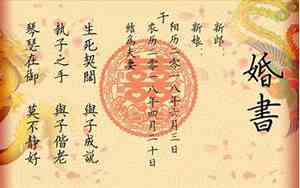 婚書
新郎：
新娘：
于
陽历二零一八年六月三日
農历二零一八年四月二十日
結為夫妻
生死契闊 與子成說
執子之手 與子偕老
琴瑟在御 莫不靜好